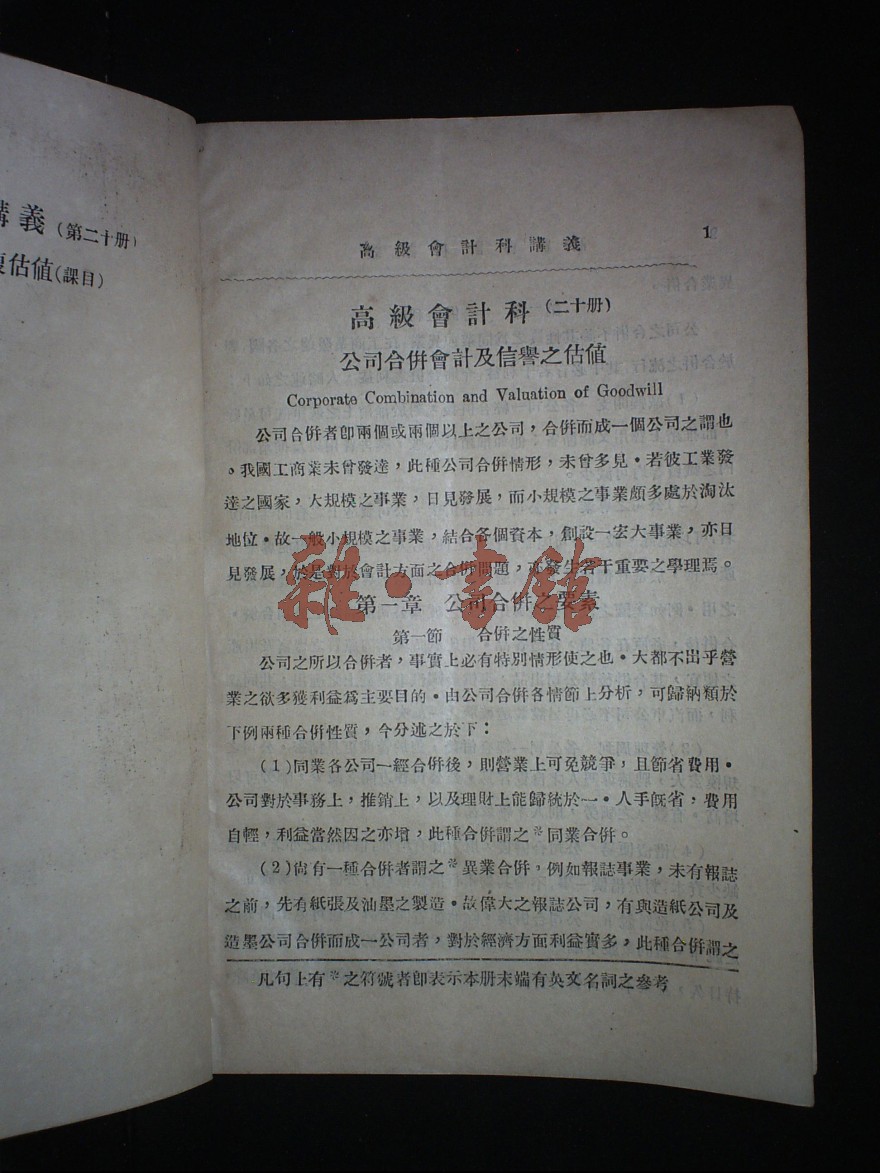 義(第二十册)
估值(課目)
高級會計科講義 1
高級會計科(二十册)
公司合併會計及信譽之估值
Corporate Combination and Valuation of Goodwill
公司合併者卽兩個或兩個以上之公司，合併而成一個公司之謂也
。我國工商業未曾發達，此種公司合併情形，未曾多見。若彼工業發
達之國家，大規模之事業，日見發展，而小規模之事業頗多處於淘汰
地位。故一般小規模之事業，結合各個資本，創設一宏大事業，亦日
見發展，於是對於會計方面之合併問題，亦發生若干重要之學理焉。
第一章 公司合併之要素
第一節 合併之性質
公司之所以合併者，事實上必有特別情形使之也。大都不出乎營
業之欲多獲利益爲主要目的。由公司合併各情節上分析，可歸納類於
下例兩種合併性質，今分述之於下：
(1)同業各公司一經合併後，則營業上可免競爭，且節省費用。
公司對於事務上，推銷上，以及理財上能歸統於一。人手旣省，費用
自輕，利益當然因之亦增，此種合併謂之※同業合併。
(2)尙有一種合併者謂之※異業合併，例如報誌事業，未有報誌
之前，先有紙張及油墨之製造。故偉大之報誌公司，有與造紙公司及
造墨公司合併而成一公司者，對於經濟方面利益實多，此種合併謂之
凡句上有※之符號者卽表示本册末端有英文名詞之參考
雜·書館